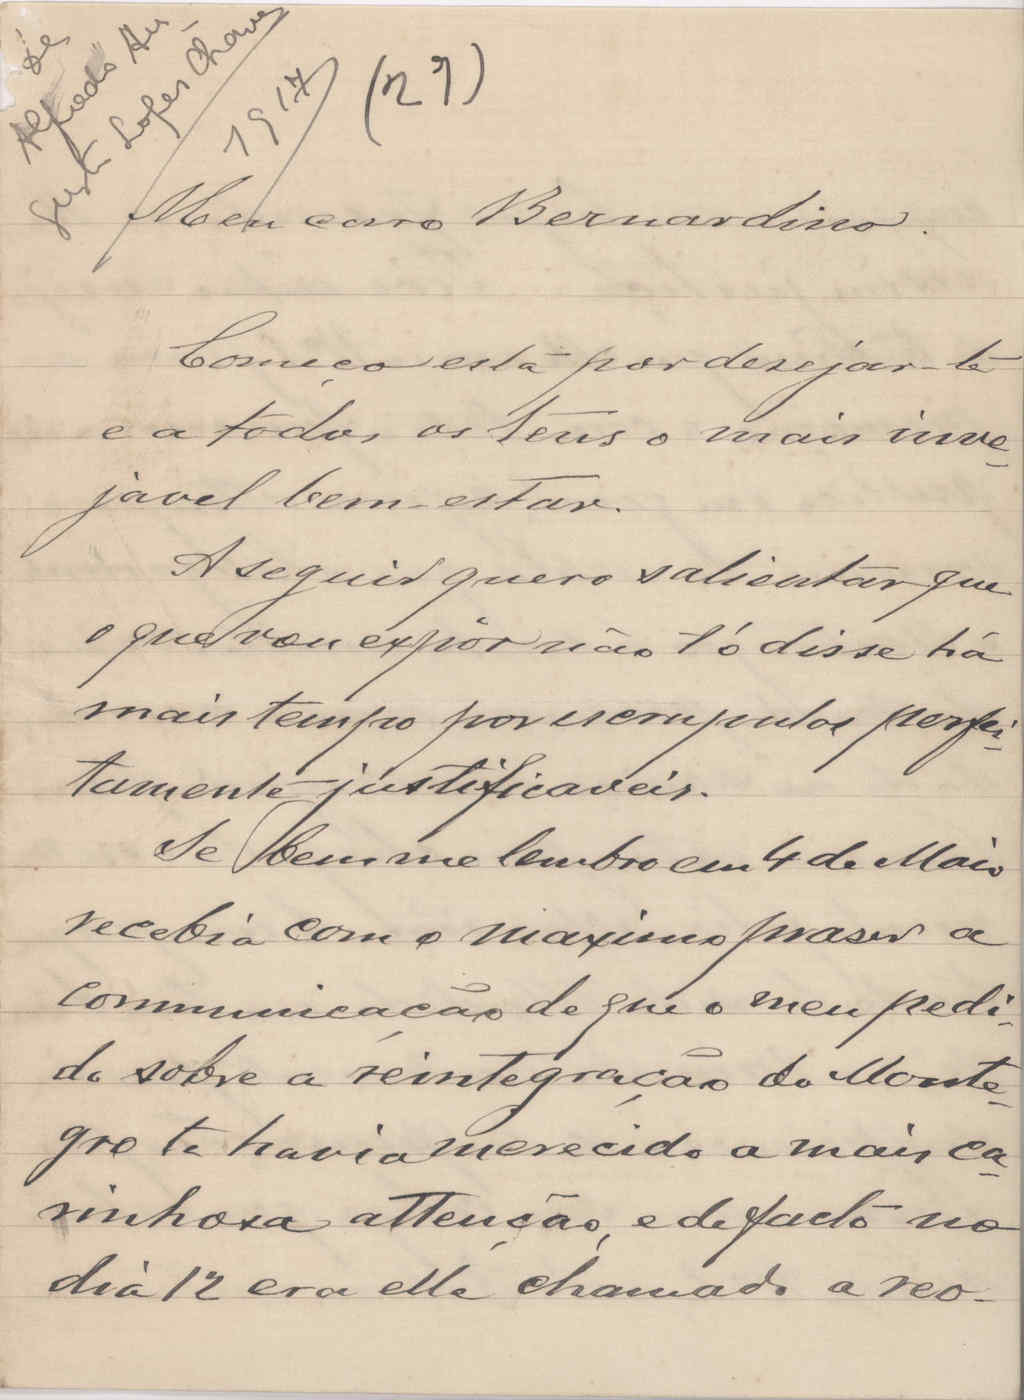 De
Alfredo Au-
gusto Lopes Chaves
1917
(29)
Meu caro Bernardino.
Começo esta por desejar-te
e a todos os teus o mais inve-
javel bem-estar.
A seguir quero salientar que
o que vou expôr não t'ó disse há
mais tempo por escrupulos perfei-
tamente justificaveis.
Se bem me lembro em 4 de Maio
recebia com o maximo praser a
communicação de que o meu pedi-
do sobre a reintegração do Monte-
gro te havia merecido a mais ca-
rinhosa attenção, e de facto no
dia 12 era elle chamado a reo-